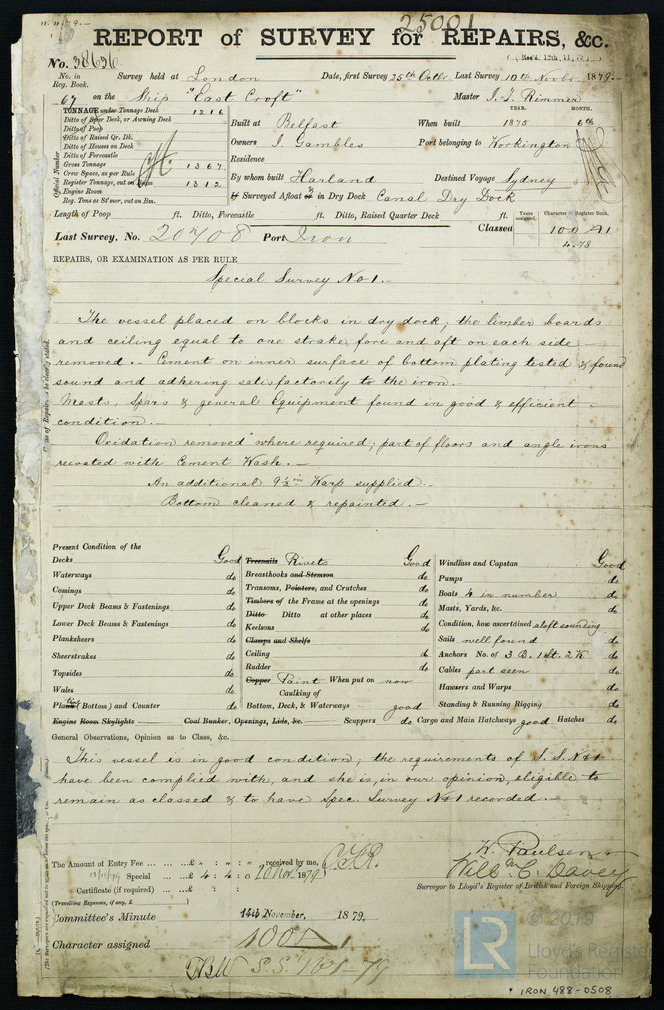 11. 11. 79.-
25001
REPORT of SURVEY for REPAIRS, &c.
No. 38636
(Rec'd. 12th, 11, 79)
No. in Reg. Book. Survey held at London Date, first Survey 25th Octbr. Last Survey 10th Novbr. 1879.-
67 on the Ship "East Croft" Master I. J. Rimmer
TONNAGE under Tonnage Deck 1216
Ditto of Spar Deck, or Awning Deck
Ditto of Poop
Ditto of Raised Qr. Dk.
Ditto of Houses on Deck
Ditto of Forecastle
Gross Tonnage 1367
Crew Space, as per Rule
Register Tonnage, cut on Beam 1312
Engine Room
Reg. Tons as St'mer, cut on Bm.
Official Number
YEAR. MONTH.
Built at Belfast When built 1875 6th
Owners I. Gambles Port belonging to Workington
Residence
By whom built Harland Destined Voyage Sydney
If Surveyed Afloat or in Dry Dock Canal Dry Dock
Length of Poop ft. Ditto, Forecastle ft. Ditto, Raised Quarter Deck ft.
Years assigned. Character in Register Book.
Last Survey, No. 20708 Port Iron Classed 100 A1
4.78
REPAIRS, OR EXAMINATION AS PER RULE
Special Survey No 1.-
The vessel placed on blocks in dry dock; the limber boards
and ceiling equal to one strake fore and aft on each side
removed.- Cement on inner surface of bottom plating tested & found
sound and adhering satisfactorily to the iron.
Masts, Spars & general Equipment found in good & efficient
condition.-
Oxidation removed where required; part of floors and angle irons
recoated with Cement Wash.-
An additional 9½ in Warp supplied.-
Bottom cleaned & repainted.-
Present Condition of the
Decks Good
Waterways do
Comings do
Upper Deck Beams & Fastenings do
Lower Deck Beams & Fastenings do
Planksheers do
Sheerstrakes do
Topsides do
Wales do
Plank (Bottom) and Counter do
Treenails Rivets Good
Breasthooks and Stemson do
Transoms, Pointers, and Crutches do
Timbers of the Frame at the openings do
Ditto Ditto at other places do
Keelsons do
Clamps and Shelfs
Ceiling do
Rudder do
Copper Paint When put on now
Caulking of
Bottom, Deck, & Waterways good
Windlass and Capstan Good
Pumps do
Boats 4 in number do
Masts, Yards, &c. do
Condition, how ascertained aloft sounding
Sails well found do
Anchors No. of 3 B. 1 St. 2 K do
Cables part seen do
Hawsers and Warps do
Standing & Running Rigging do
Engine Room Skylights Coal Bunker, Openings, Lids, &c. Scuppers do Cargo and Main Hatchways good Hatches do
General Observations, Opinion as to Class, &c.
This vessel is in good condition; the requirements of S. S. No 1
have been complied with, and she is, in our opinion, eligible to
remain as classed & to have Spec. Survey No 1 recorded.-
The Amount of Entry Fee ... ... ... £ : : received by me,
12/11/79 Special ... £ 4 : 4 : 0 10 Nov. 1879
Certificate (if required) ... £ : :
(Travelling Expenses, if any, £ )
W. Paulsen
Willm. C. Davey
Surveyor to Lloyd's Register of British and Foreign Shipping.
Committee's Minute 14th November, 1879.
Character assigned 100 A 1
S.S. No 1-79
© 2019
LR
Lloyd's Register
Foundation
IRON 488-0508